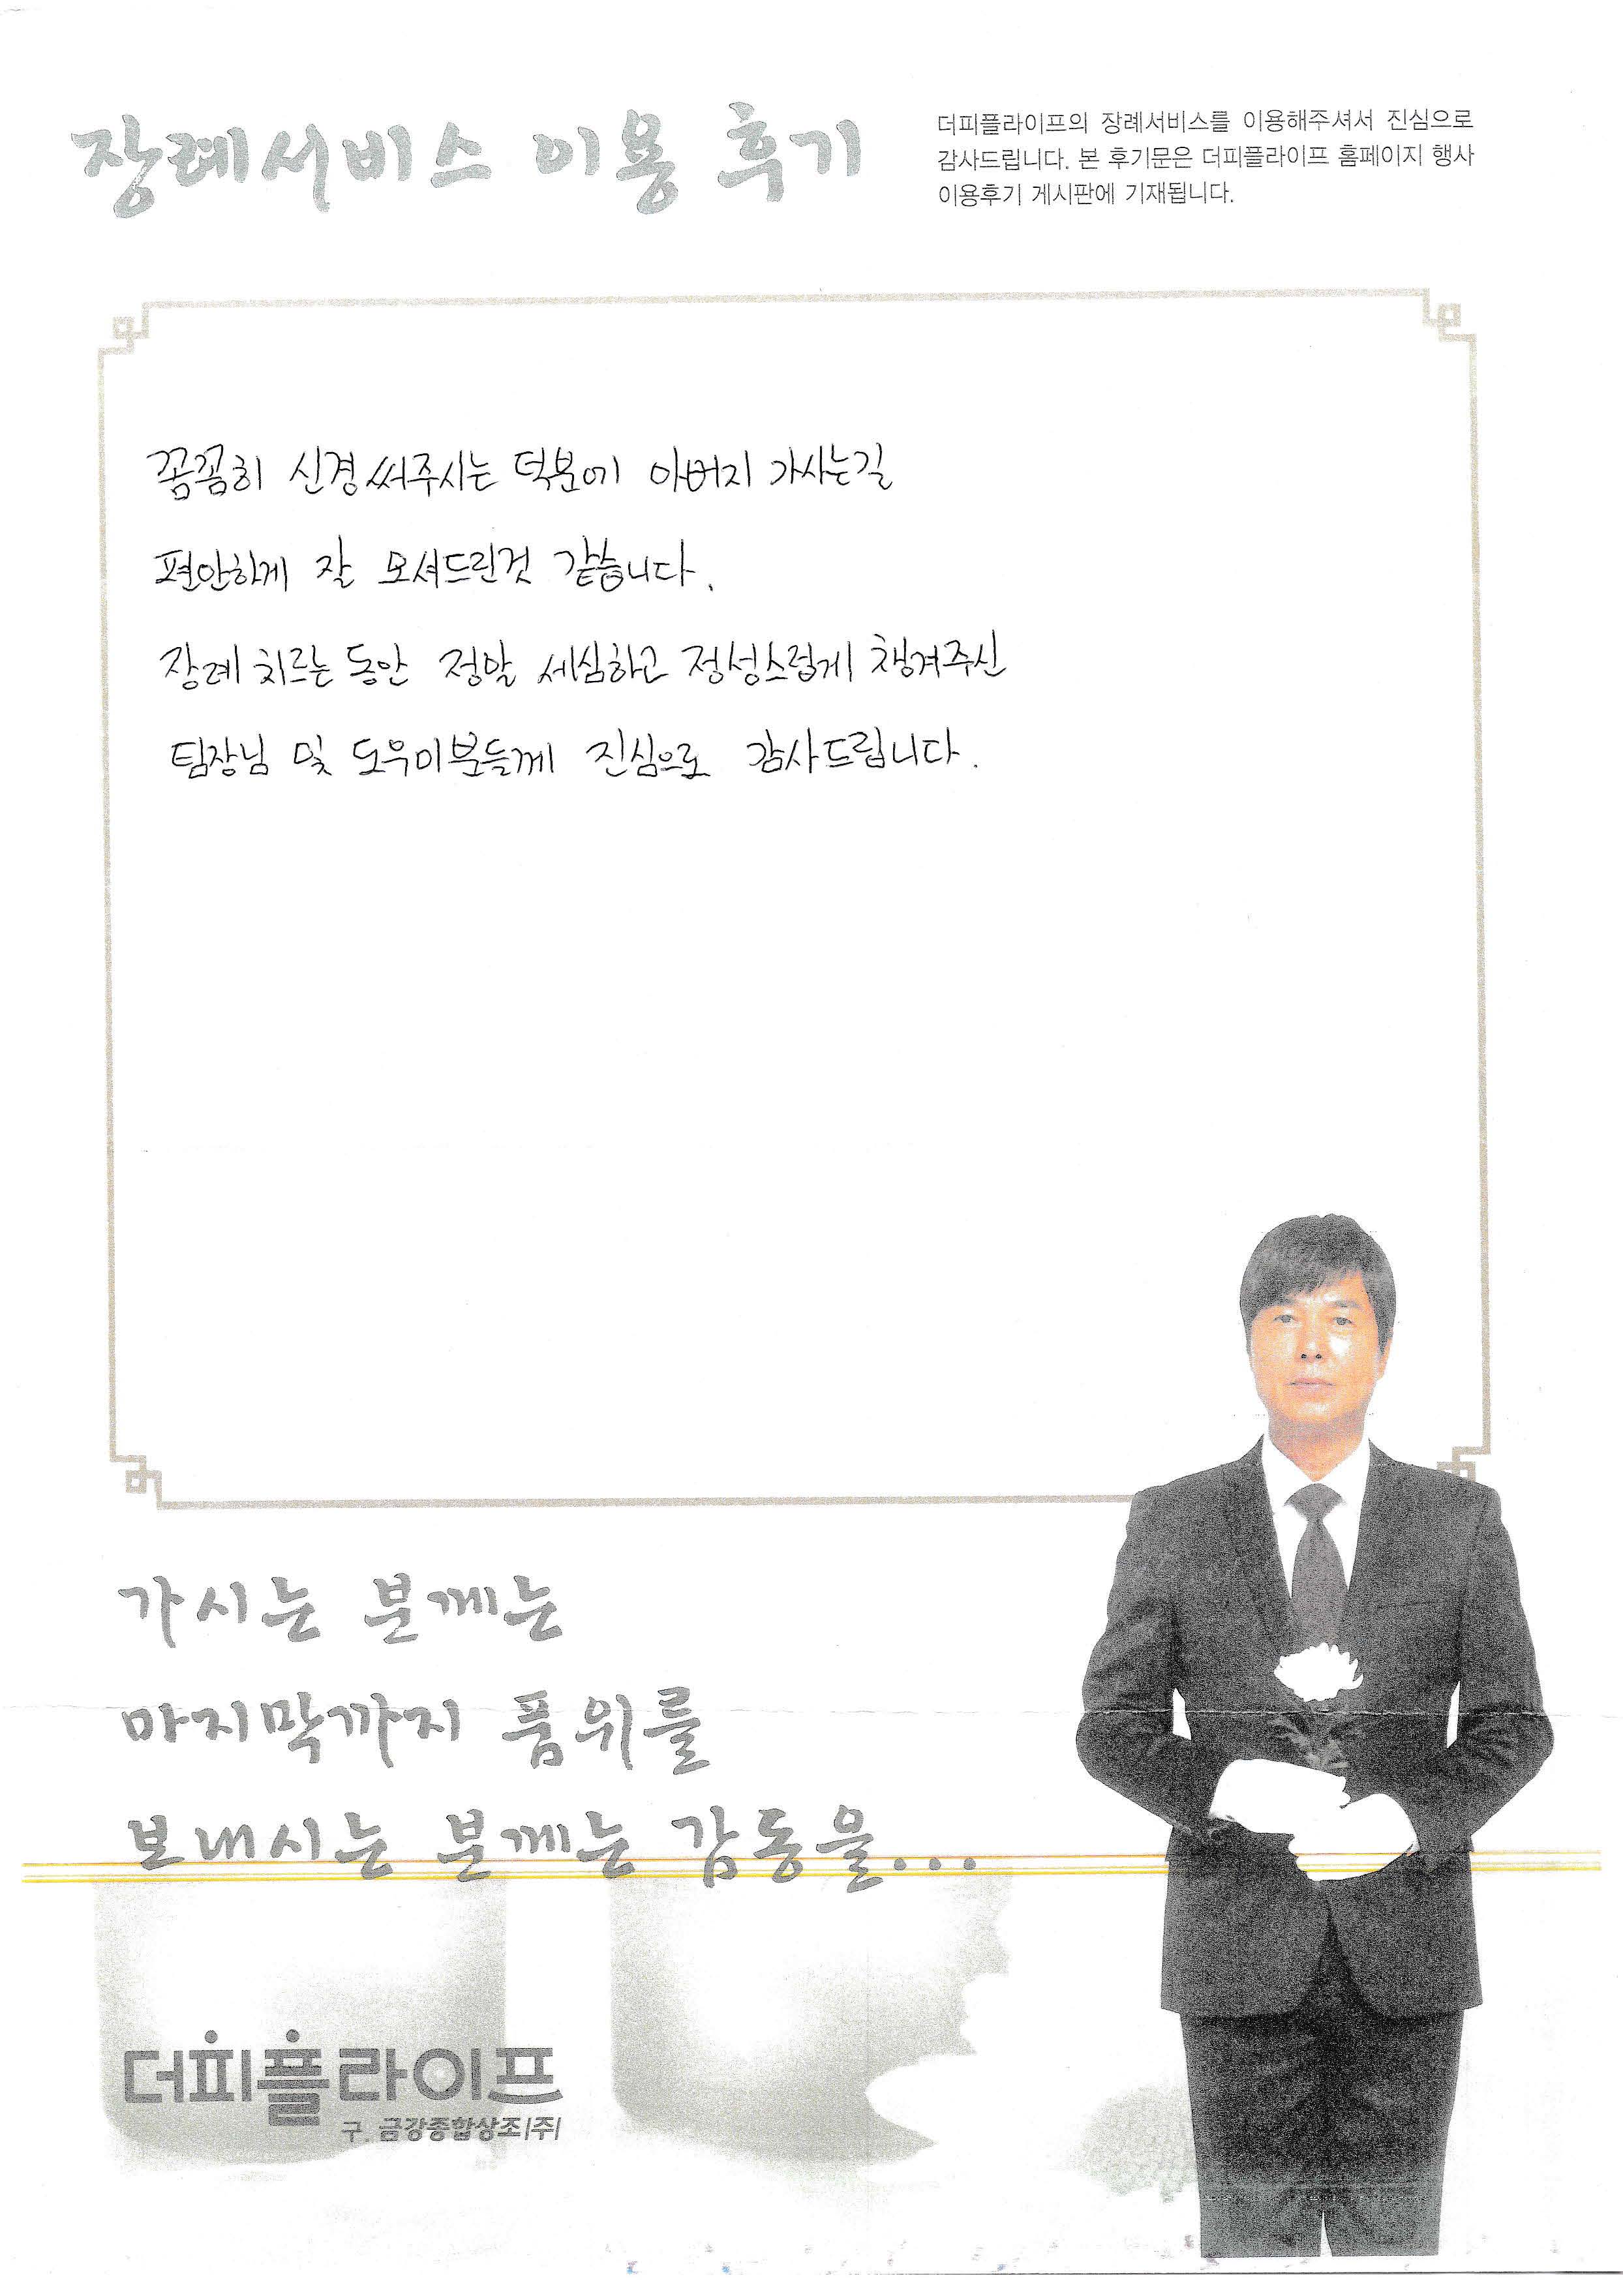 장례서비스 이용 후기
더피플라이프의 장례서비스를 이용해주셔서 진심으로
감사드립니다. 본 후기문은 더피플라이프 홈페이지 행사
이용후기 게시판에 기재됩니다.
꼼꼼히 신경써주시는 덕분에 아버지 가시는길
편안하게 잘 모셔드린것 같습니다.
장례 치르는 동안 정말 세심하고 정성스럽게 챙겨주신
팀장님 및 도우미분들께 진심으로 감사드립니다.
가시는 분께는
마지막까지 품위를
보내시는 분께는 감동을...
더피플라이프
구. 금강종합상조(주)